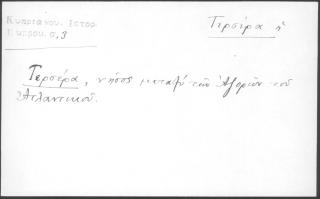 Κυπριανου. Ιστορ.
Κυπρου. σ,3
Τερσέρα ἡ
Τερσέρα, νῆσος μεταξὺ τῶν Ἀζορῶν τοῦ
Ἀτλαντικοῦ.